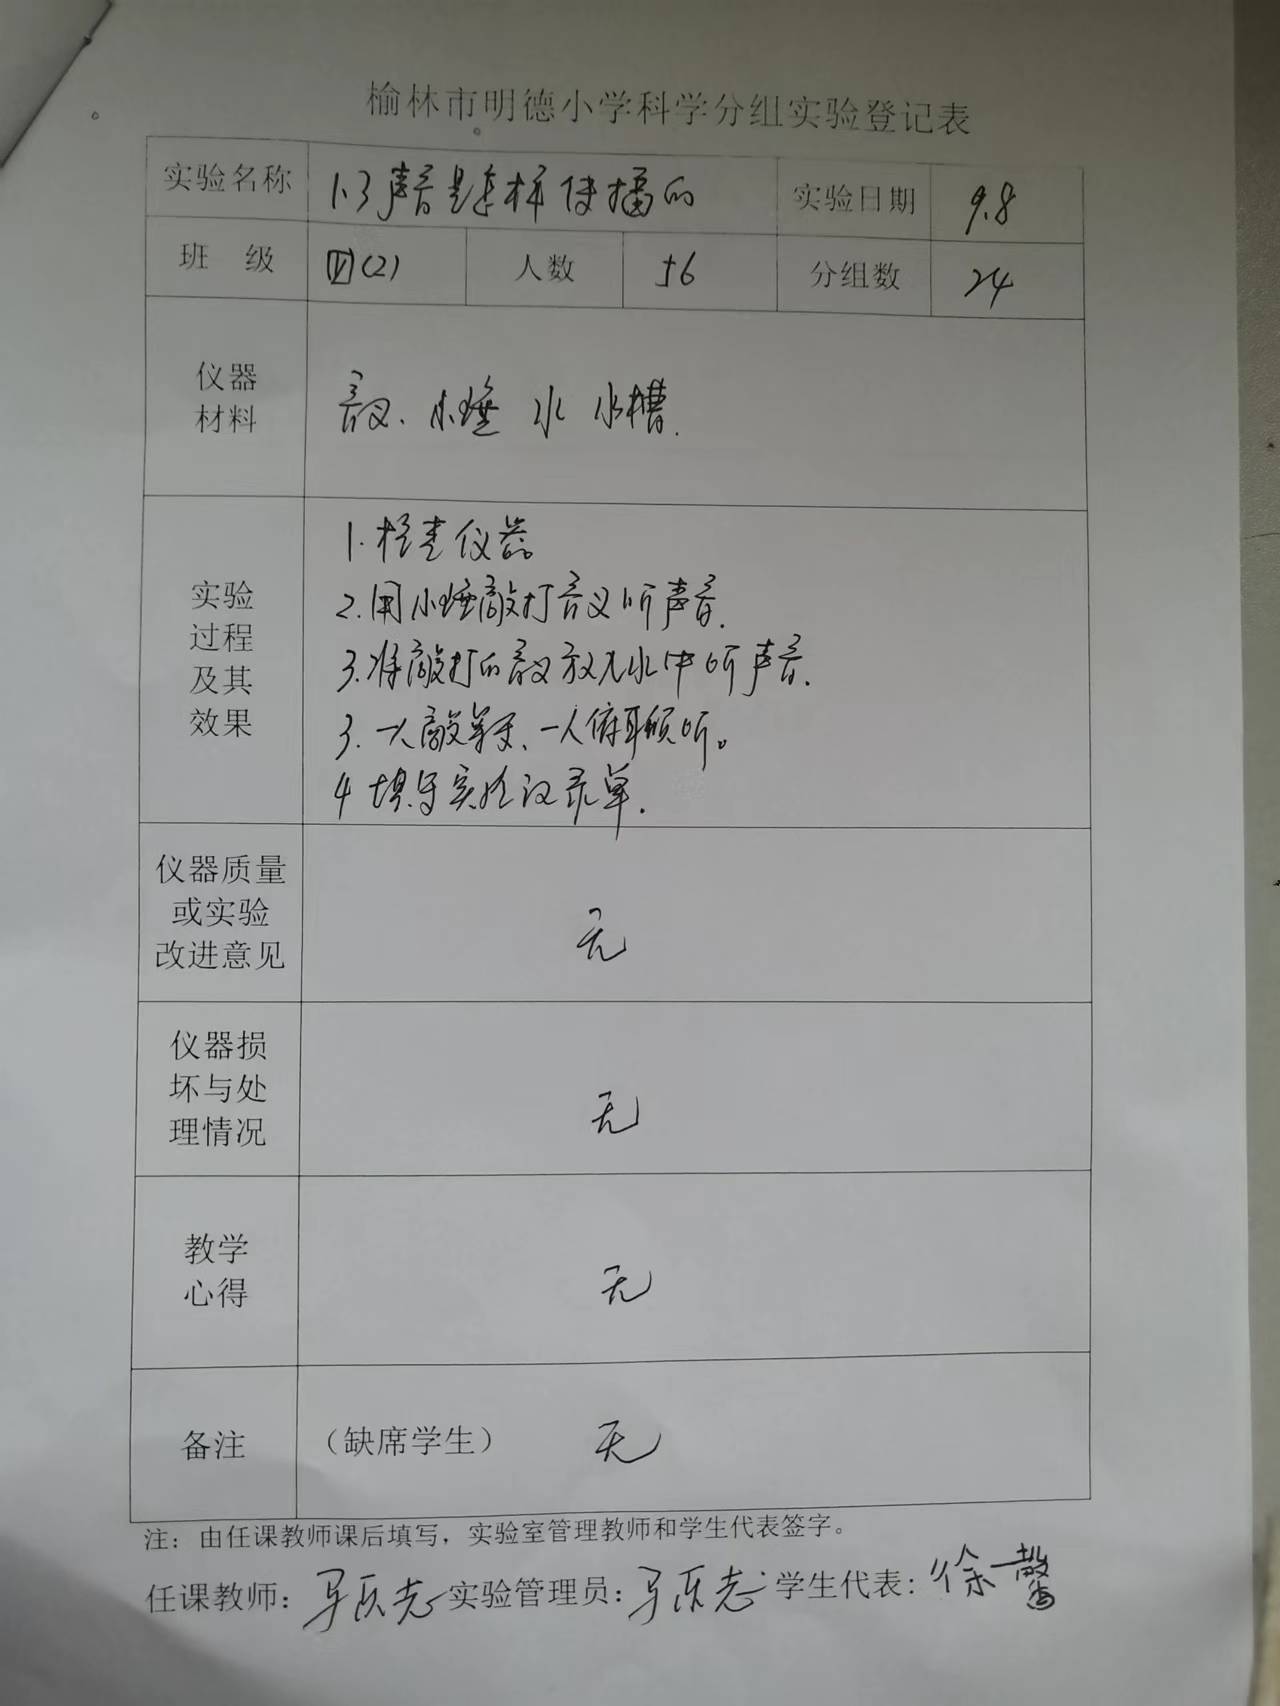 榆林市明德小学科学分组实验登记表
实验名称 1.3声音是怎样传播的 实验日期 9.8
班 级 四(2) 人数 56 分组数 24
仪器
材料
音叉、小锤 水 水槽.
实验
过程
及其
效果
1.检查仪器
2.用小锤敲打音叉听声音.
3.将敲打的音叉放入水中听声音.
3.一人敲桌子、一人俯耳倾听。
4 填写实验记录单.
仪器质量
或实验
改进意见
无
仪器损
坏与处
理情况
无
教学
心得
无
备注 (缺席学生) 无
注：由任课教师课后填写，实验室管理教师和学生代表签字。
任课教师： 实验管理员： 学生代表: 徐一